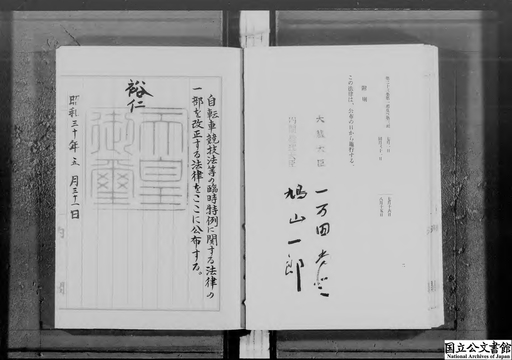 附則
この法律は、公布の日から施行する。
大蔵大臣
一万田尚登
内閣総理大臣
鳩山一郎
自転車競技法等の臨時特例に関する法律の
一部を改正する法律をここに公布する。
裕仁
天皇
御璽
昭和三十年五月三十一日
国立公文書館
National Archives of Japan